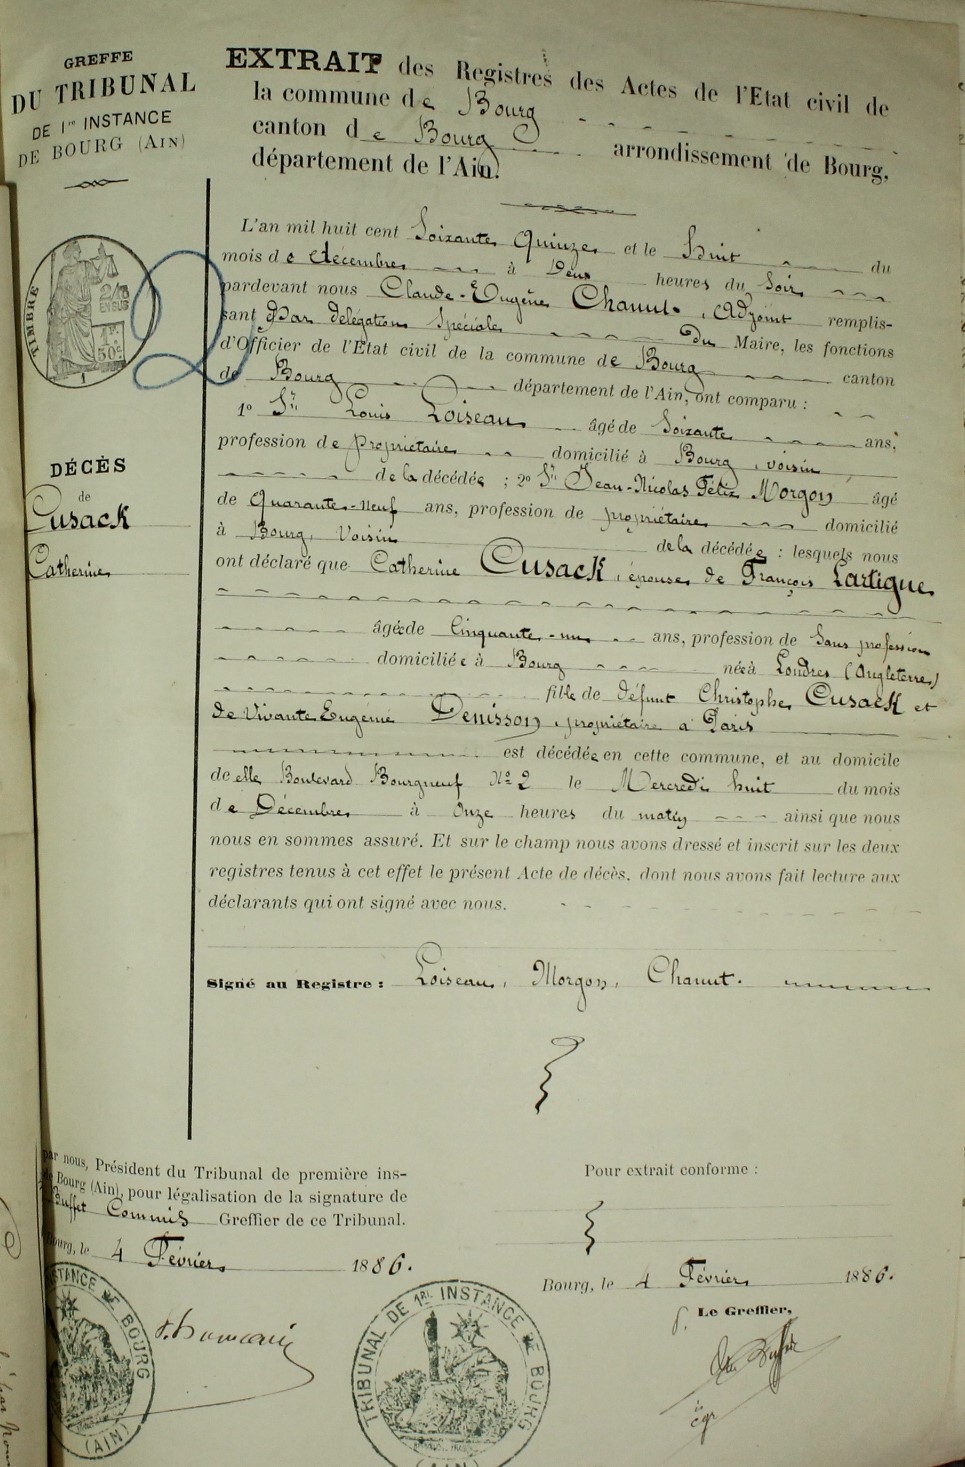 GREFFE
DU TRIBUNAL
DE 1re INSTANCE
DE BOURG (AIN)
EXTRAIT des Registres des Actes de l'Etat civil de
la commune de Bourg
canton de Bourg arrondissement de Bourg,
département de l'Ain.
TIMBRE
2/10
EN SUS
1F.
50c
1
DÉCÈS
de
Cusack
Catherine
L'an mil huit cent Soixante Quinze et le huit du
mois de décembre à Deux heures du Soir
pardevant nous Claude-Eugène Chanut, Adjoint remplis-
sant Par délégation Spéciale du Maire, les fonctions
d'Officier de l'Etat civil de la commune de Bourg canton
de Bourg département de l'Ain, ont comparu :
1o Sr Louis Loiseau âgé de Soixante ans,
profession de propriétaire domicilié à Bourg, voisin
de la décédée ; 2o Sr Jean-Nicolas Félix Morgon âgé
de Quarante-Neuf ans, profession de propriétaire domicilié
à Bourg, Voisin de la décédée : lesquels nous
ont déclaré que Catherine Cusack, épouse de François Lartigue
âgée de Cinquante-un ans, profession de Sans profession
domiciliée à Bourg née à Londres (Angleterre)
fille de défunt Christophe Cusack et
de Vivante Eugénie Denisson, propriétaire à Paris
est décédée en cette commune, et au domicile
de elle Boulevard Bourgneuf No 2 le Mercredi huit du mois
de Décembre à Onze heures du matin ainsi que nous
nous en sommes assuré. Et sur le champ nous avons dressé et inscrit sur les deux
registres tenus à cet effet le présent Acte de décès, dont nous avons fait lecture aux
déclarants qui ont signé avec nous.
Signé au Registre : Loiseau, Morgon, Chanut.
par nous, Président du Tribunal de première ins-
de Bourg (Ain), pour légalisation de la signature de
Buffet Commis Greffier de ce Tribunal.
Bourg, le 4 Février 1886.
Pour extrait conforme :
Bourg, le 4 Février 1886.
Le Greffier,
TRIBUNAL DE 1RE INSTANCE DE BOURG
(AIN)
STANCE DE BOURG
(AIN)